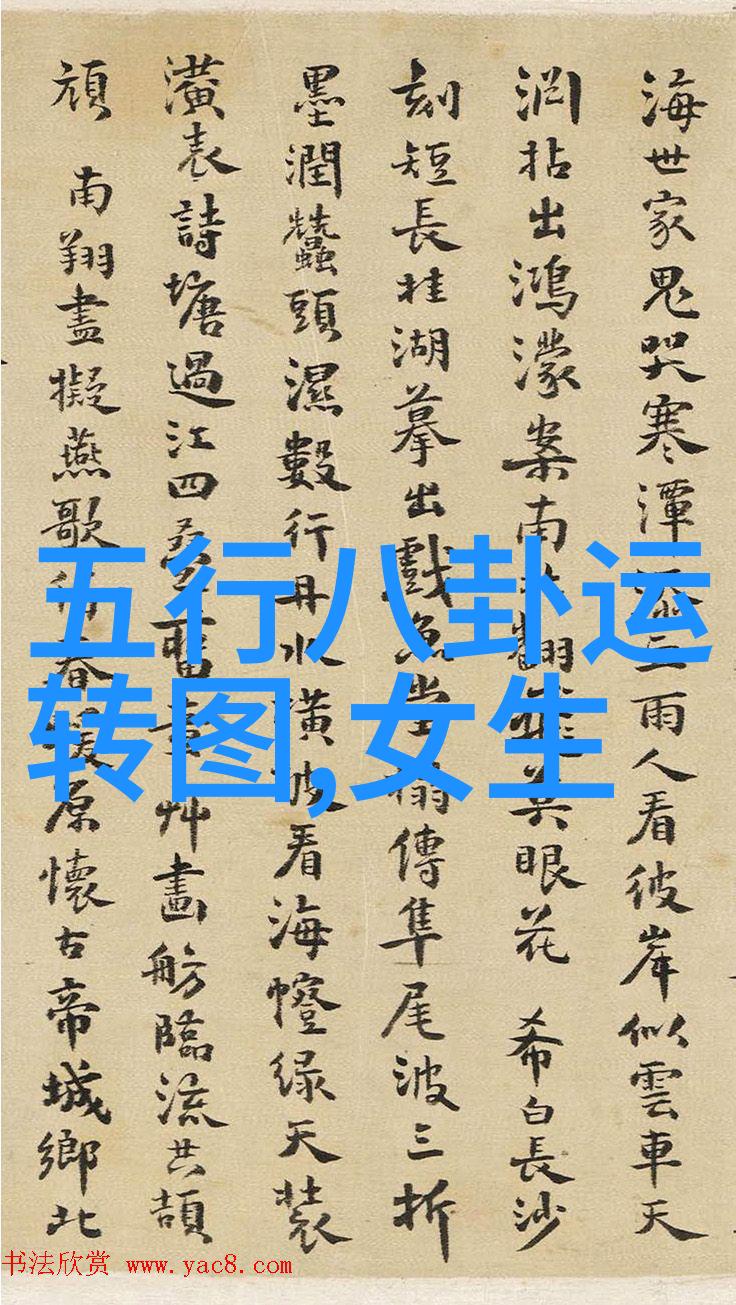 海世家鬼哭寒潭雨人看彼岸似雲車天
拈出鴻濛案南翻英眼花 希白長沙
刻短長桂湖摹出戲魚堂榻傳隼尾波三折
墨潤蠶頭濕數行丹水潢披看海幢綠天裝
潢表詩塘過江四舊艸畫舫臨流共頡
頏 南翔盡擬燕歌春原懷古帝城鄉北
五行八卦运
转图,女生
书法欣赏 www.yac8.com